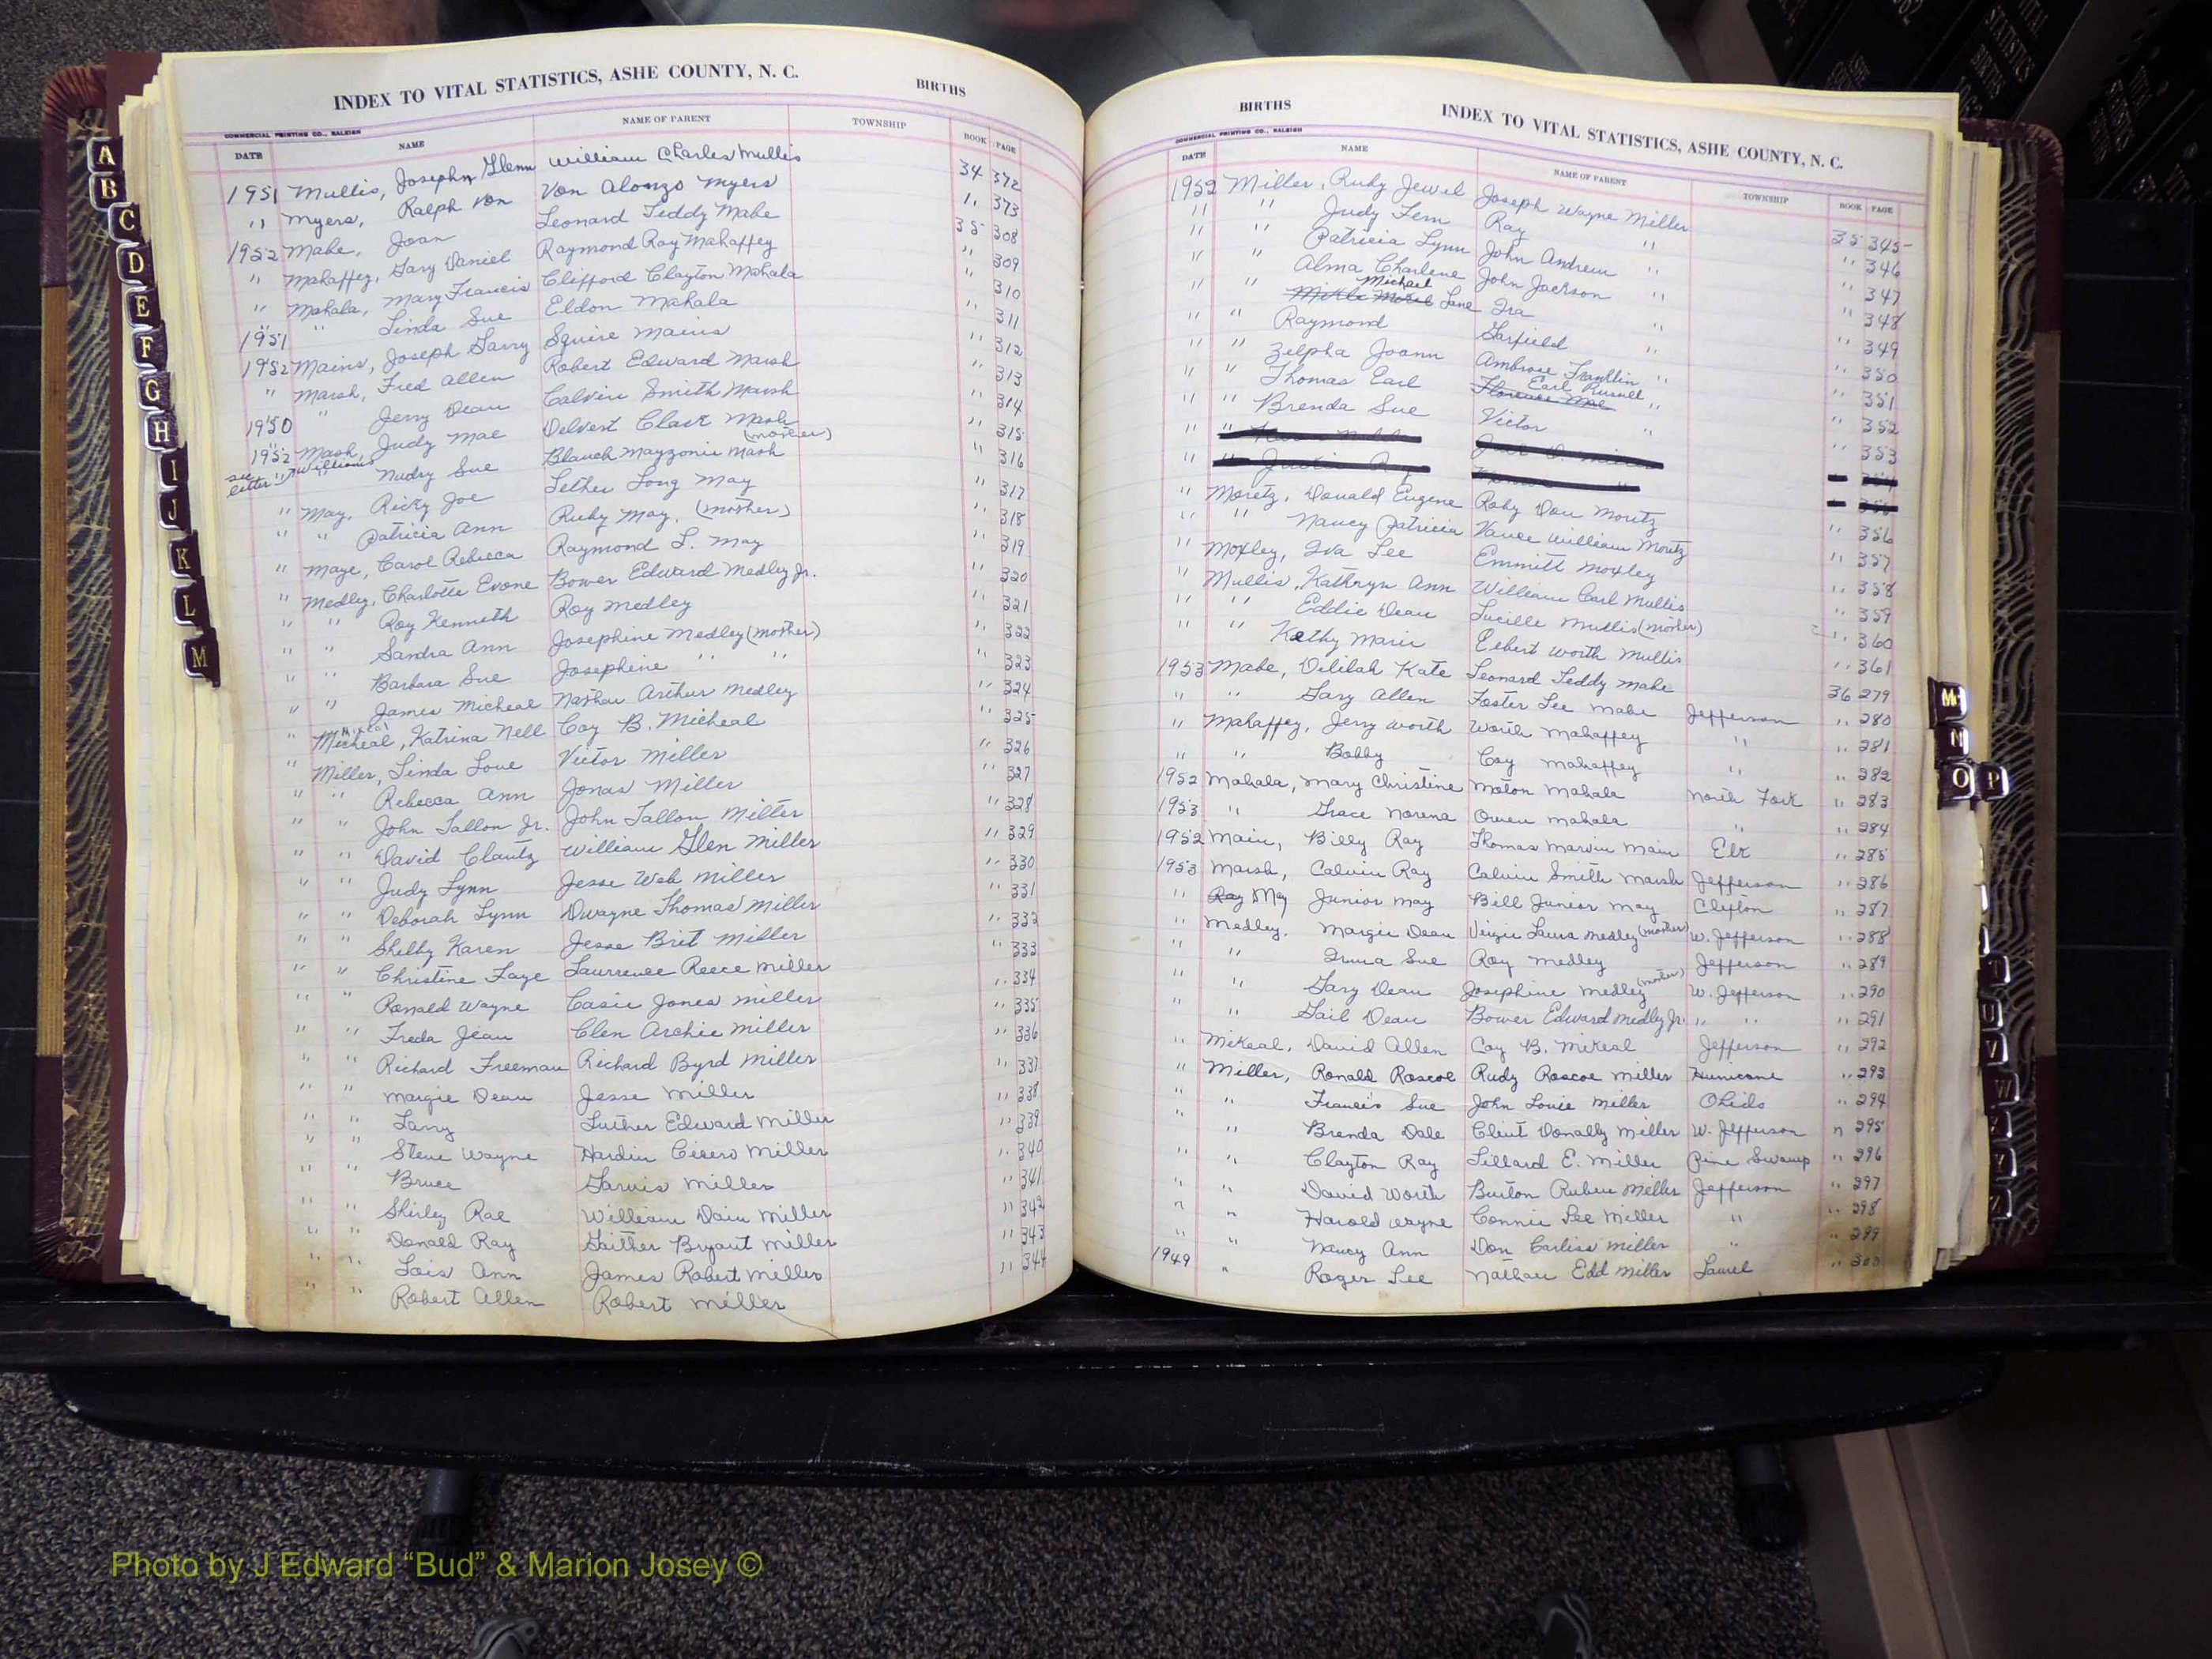 INDEX TO VITAL STATISTICS, ASHE COUNTY, N. C. BIRTHS
COMMERCIAL PRINTING CO., RALEIGH
DATE NAME NAME OF PARENT TOWNSHIP BOOK PAGE
1951 Mullis, Joseph Glenn William Charles Mullis 34 372
" Myers, Ralph Von Von Alonzo Myers " 373
1952 Mabe, Joan Leonard Teddy Mabe 35 308
" Mahaffey, Gary Daniel Raymond Ray Mahaffey " 309
" Mahala, Mary Francis Clifford Clayton Mahala " 310
" " Linda Sue Eldon Mahala " 311
1951
1952 Mains, Joseph Garry Squire Mains " 312
" Marsh, Fred Allen Robert Edward Marsh " 313
" Jerry Dean Calvin Smith Marsh " 314
1950
1952 Mash, Judy Mae Delvert Clark Mash " 315
see letter " Williams Nudry Sue Blanch Mayzonie Mash (mother) " 316
" May, Ricky Joe Lether Long May " 317
" " Patricia Ann Ruby May. (mother) " 318
" Maye, Carol Rebecca Raymond L. May " 319
" Medley, Charlotte Evone Bower Edward Medley Jr. " 320
" " Roy Kenneth Roy Medley " 321
" " Sandra Ann Josephine Medley (mother) " 322
" " Barbara Sue Josephine " " " 323
" " James Micheal Nathan Arthur Medley " 324
" Micheal, Katrina Nell Coy B. Micheal " 325
" Miller, Linda Lou Victor Miller " 326
" " Rebecca Ann Jonas Miller " 327
" " John Tallon Jr. John Tallon Miller " 328
" " David Clautz William Glen Miller " 329
" " Judy Lynn Jesse Web Miller " 330
" " Deborah Lynn Dwayne Thomas Miller " 331
" " Shelby Karen Jesse Brit Miller " 332
" " Christine Faye Laurrence Reece Miller " 333
" " Ronald Wayne Casie Jones Miller " 334
" " Freda Jean Clen Archie Miller " 335
" " Richard Freeman Richard Byrd Miller " 336
" " Margie Dean Jesse Miller " 337
" " Larry Luther Edward Miller " 338
" " Steve Wayne Hardin Cicero Miller " 339
" " Bruce Jarvis Miller " 340
" " Shirley Rae William Dain Miller " 341
" " Donald Ray Gaither Bryant Miller " 342
" " Lois Ann James Robert Miller " 343
" " Robert Allen Robert Miller " 344
BIRTHS INDEX TO VITAL STATISTICS, ASHE COUNTY, N. C.
COMMERCIAL PRINTING CO., RALEIGH
DATE NAME NAME OF PARENT TOWNSHIP BOOK PAGE
1952 Miller, Ruby Jewel Joseph Wayne Miller 35 345
" " Judy Fern Ray " " 346
" " Patricia Lynn John Andrew " " 347
" " Alma Charlene John Jackson " " 348
" " Michael Lane Ira " " 349
" " Raymond Garfield " " 350
" " Zelpha Joann Ambrose Franklin " " 351
" " Thomas Earl Florence Mae Earl Russell " " 352
" " Brenda Sue Victor " " 353
" Moretz, Donald Eugene Roby Don Moretz " 356
" " Nancy Patricia Vance William Moretz " 357
" Moxley, Iva Lee Emmitt Moxley " 358
" Mullis, Kathryn Ann William Carl Mullis " 359
" " Eddie Dean Lucille Mullis (mother) " 360
" " Kathy Marie Elbert Worth Mullis " 361
1953 Mabe, Delilah Kate Leonard Teddy Mabe 36 279
" " Gary Allen Foster Lee Mabe Jefferson " 280
" Mahaffey, Jerry Worth Worth Mahaffey " " 281
" " Bobby Coy Mahaffey " " 282
1952 Mahala, Mary Christine Molon Mahala North Fork " 283
1953 " Grace Norena Owen Mahala " " 284
1952 Main, Billy Ray Thomas Marvin Main Elk " 285
1953 Marsh, Calvin Ray Calvin Smith Marsh Jefferson " 286
" Ray May Junior May Bill Junior May Clifton " 287
" Medley, Margie Dean Virgie Laura Medley (mother) W. Jefferson " 288
" " Irma Sue Roy Medley Jefferson " 289
" " Gary Dean Josephine Medley (mother) W. Jefferson " 290
" " Gail Dean Bower Edward Medley Jr. " " " 291
" McKeal, David Allen Coy B. McKeal Jefferson " 292
" Miller, Ronald Roscoe Rudy Roscoe Miller Hurricane " 293
" " Francis Sue John Louie Miller Obids " 294
" " Brenda Dale Clint Donally Miller W. Jefferson " 295
" " Clayton Ray Lillard E. Miller Pine Swamp " 296
" " David Worth Burton Ruben Miller Jefferson " 297
" " Harold Wayne Connie Lee Miller " " 298
" " Nancy Ann Don Carliss Miller " " 299
1949 " Roger Lee Nathan Edd Miller Laurel " 300
A
B
C
D
E
F
G
H
I
J
K
L
M
Mc
N
O P
T
U
V
W
Y
Z
Photo by J Edward “Bud” & Marion Josey ©